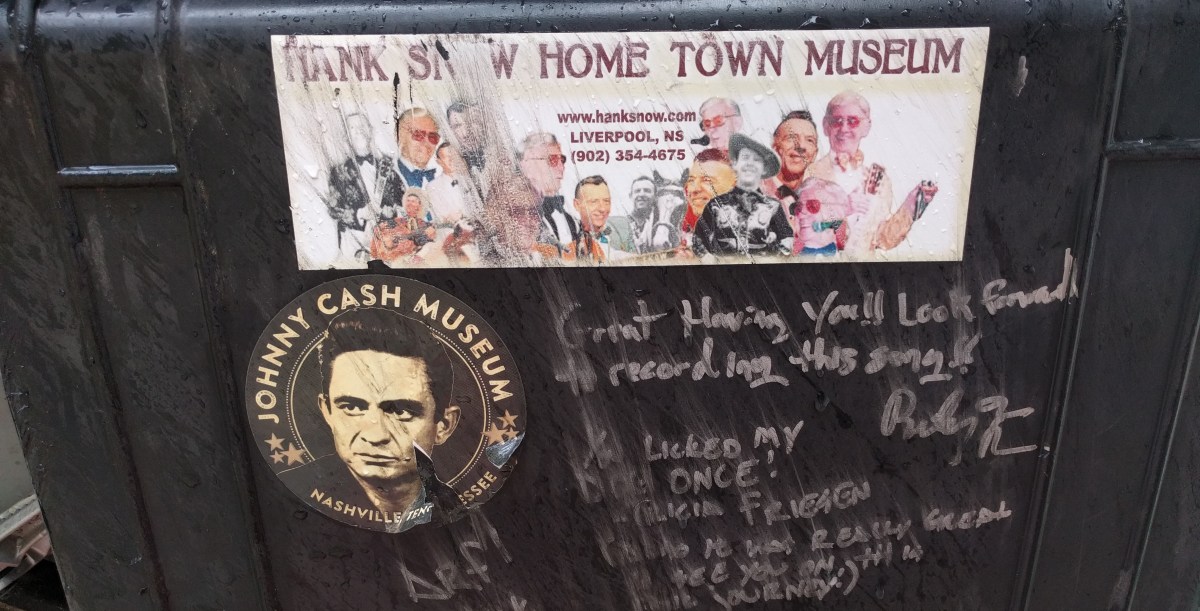 HANK SNOW HOME TOWN MUSEUM
www.hanksnow.com
LIVERPOOL, NS
(902) 354-4675
JOHNNY CASH MUSEUM
NASHVILLE TENNESSEE
Great Having You!! Look forward
recording this song!!
LICKED MY
ONCE!
ALICIA FRIESEN
REALLY GREAT
SEE YOU ON THIS
JOURNEY :)
ARF!